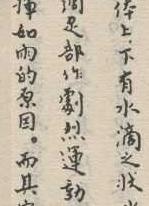 上下有水滴之状
足部作劇烈運動
揮如雨的原因。而其